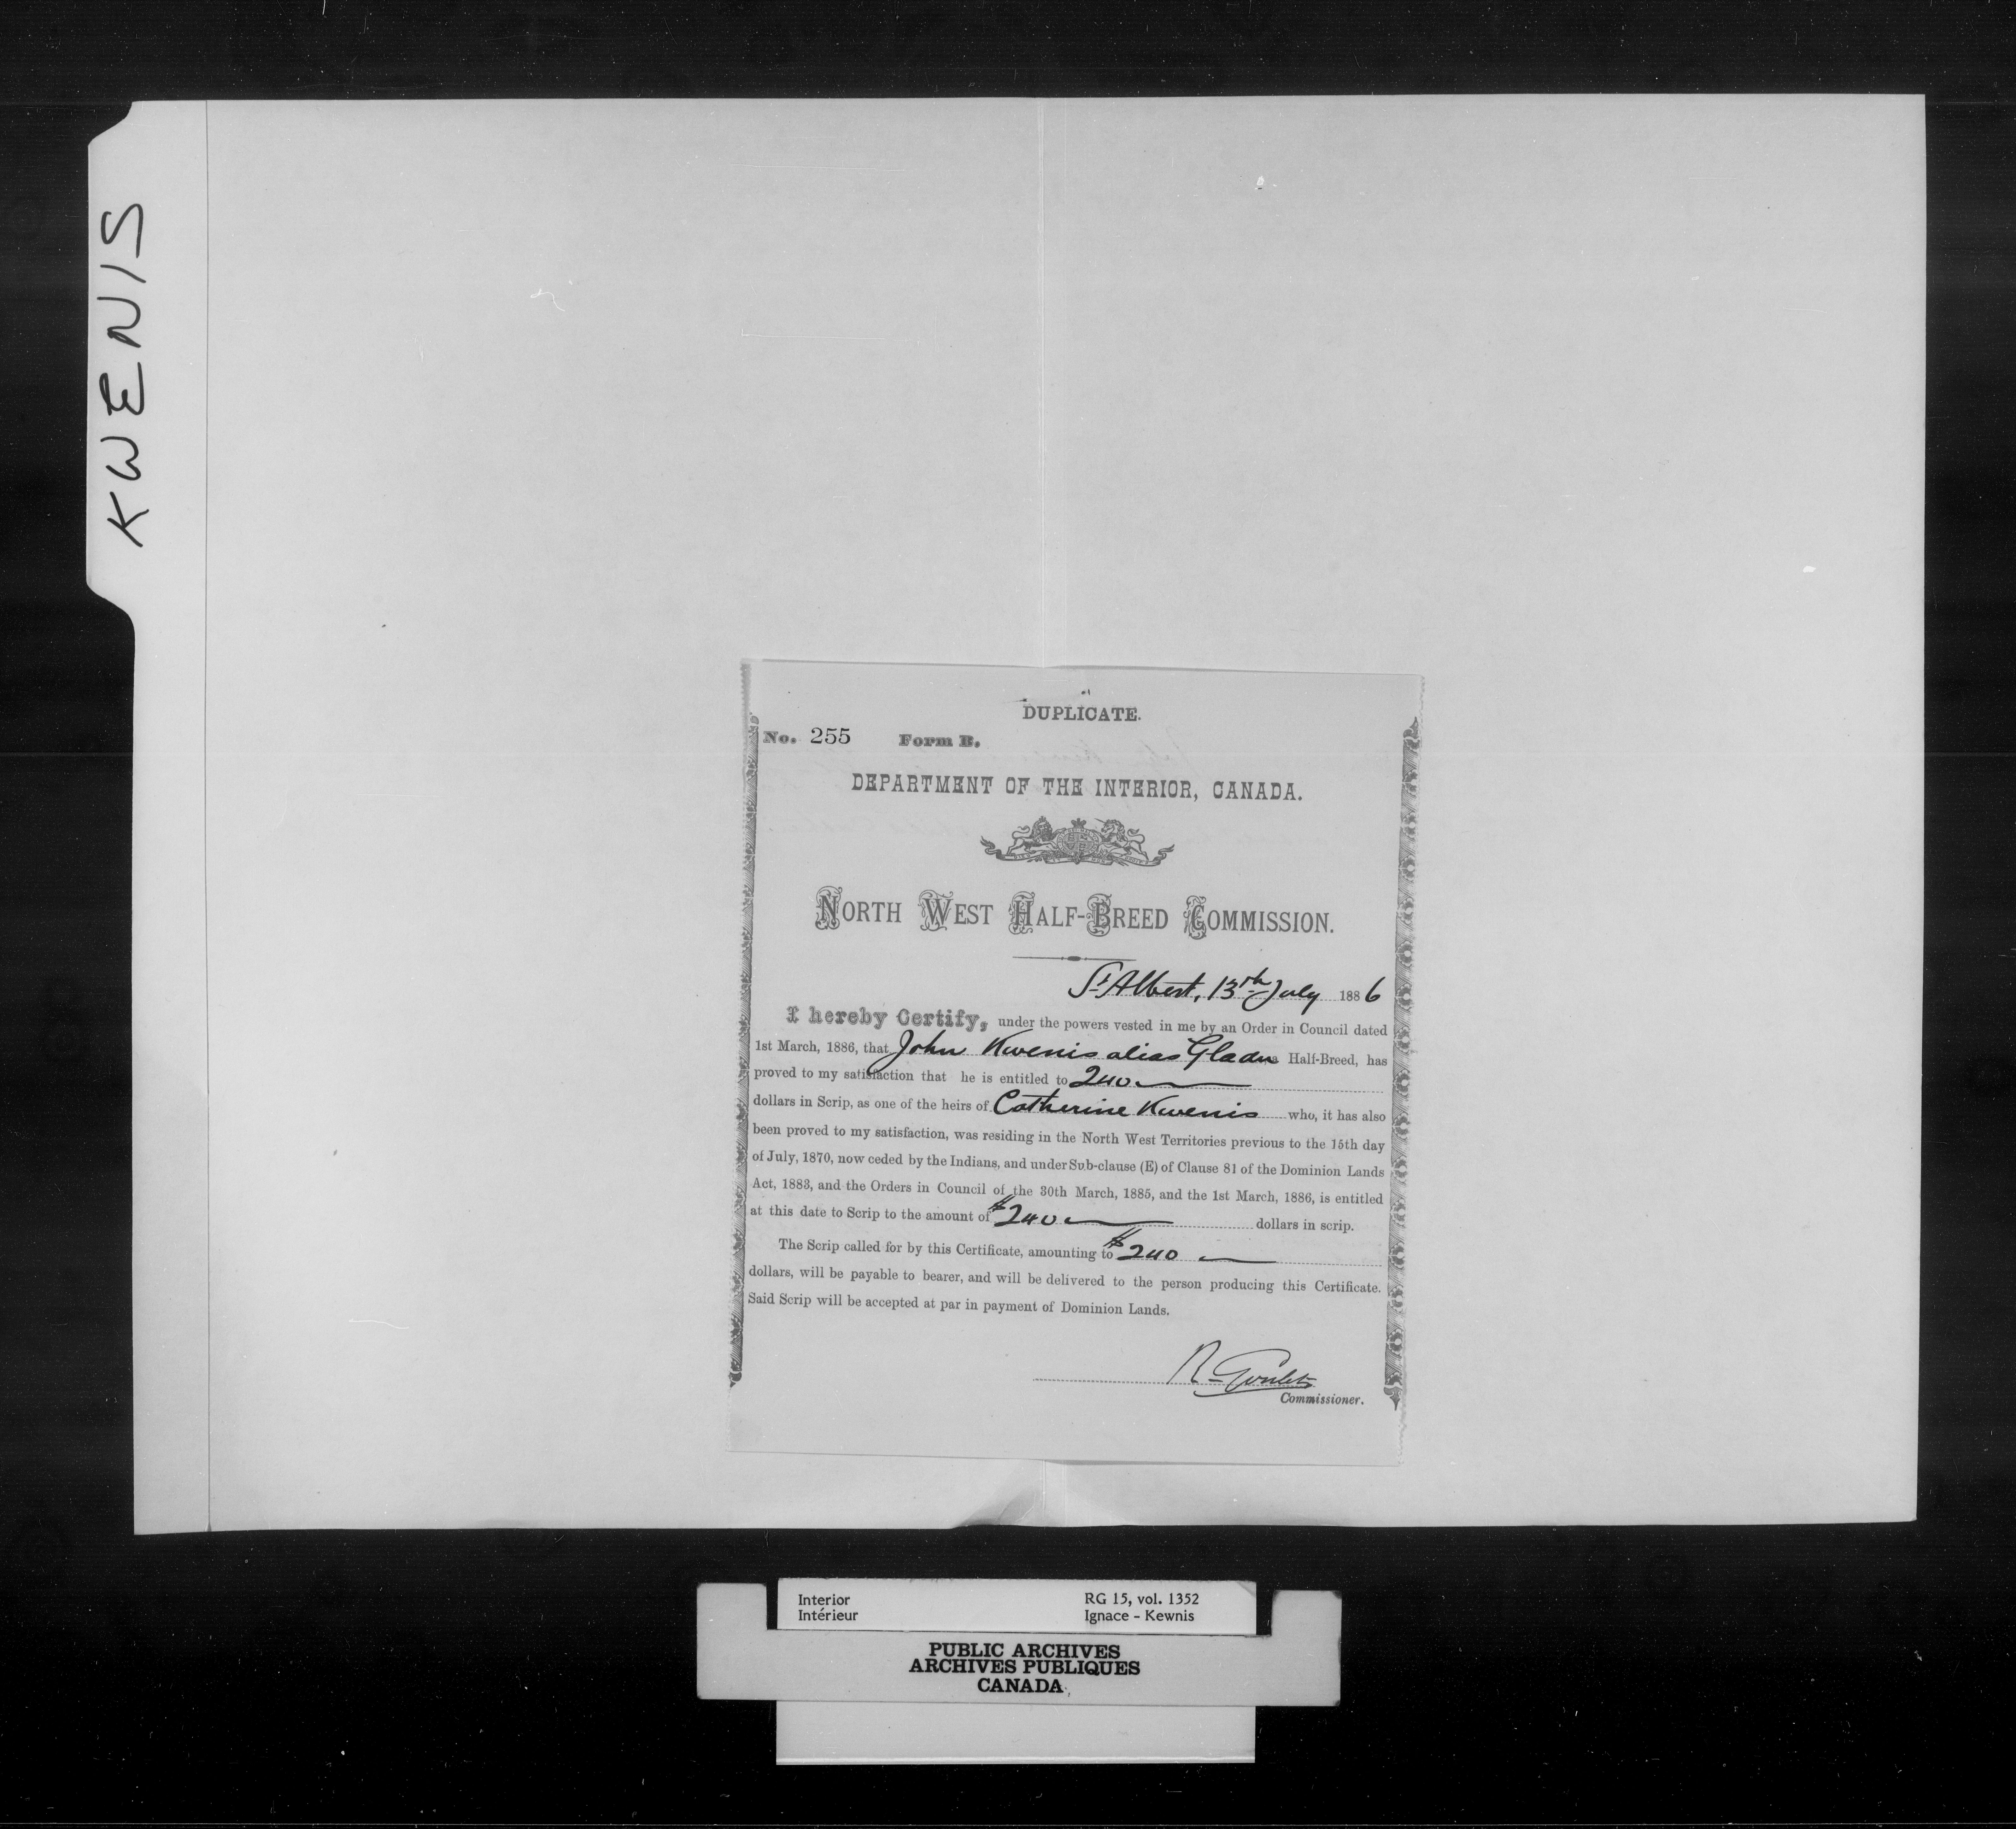 KWENIS
DUPLICATE.
No. 255 Form B.
DEPARTMENT OF THE INTERIOR, CANADA.
NORTH WEST HALF-BREED COMMISSION.
St Albert, 13th July 1886
I hereby Certify, under the powers vested in me by an Order in Council dated
1st March, 1886, that John Kwenis alias Gladu Half-Breed, has
proved to my satisfaction that he is entitled to 240
dollars in Scrip, as one of the heirs of Catherine Kwenis who, it has also
been proved to my satisfaction, was residing in the North West Territories previous to the 15th day
of July, 1870, now ceded by the Indians, and under Sub-clause (E) of Clause 81 of the Dominion Lands
Act, 1883, and the Orders in Council of the 30th March, 1885, and the 1st March, 1886, is entitled
at this date to Scrip to the amount of $240 dollars in scrip.
The Scrip called for by this Certificate, amounting to $240
dollars, will be payable to bearer, and will be delivered to the person producing this Certificate.
Said Scrip will be accepted at par in payment of Dominion Lands.
R Goulet
Commissioner.
Interior RG 15, vol. 1352
Intérieur Ignace - Kewnis
PUBLIC ARCHIVES
ARCHIVES PUBLIQUES
CANADA